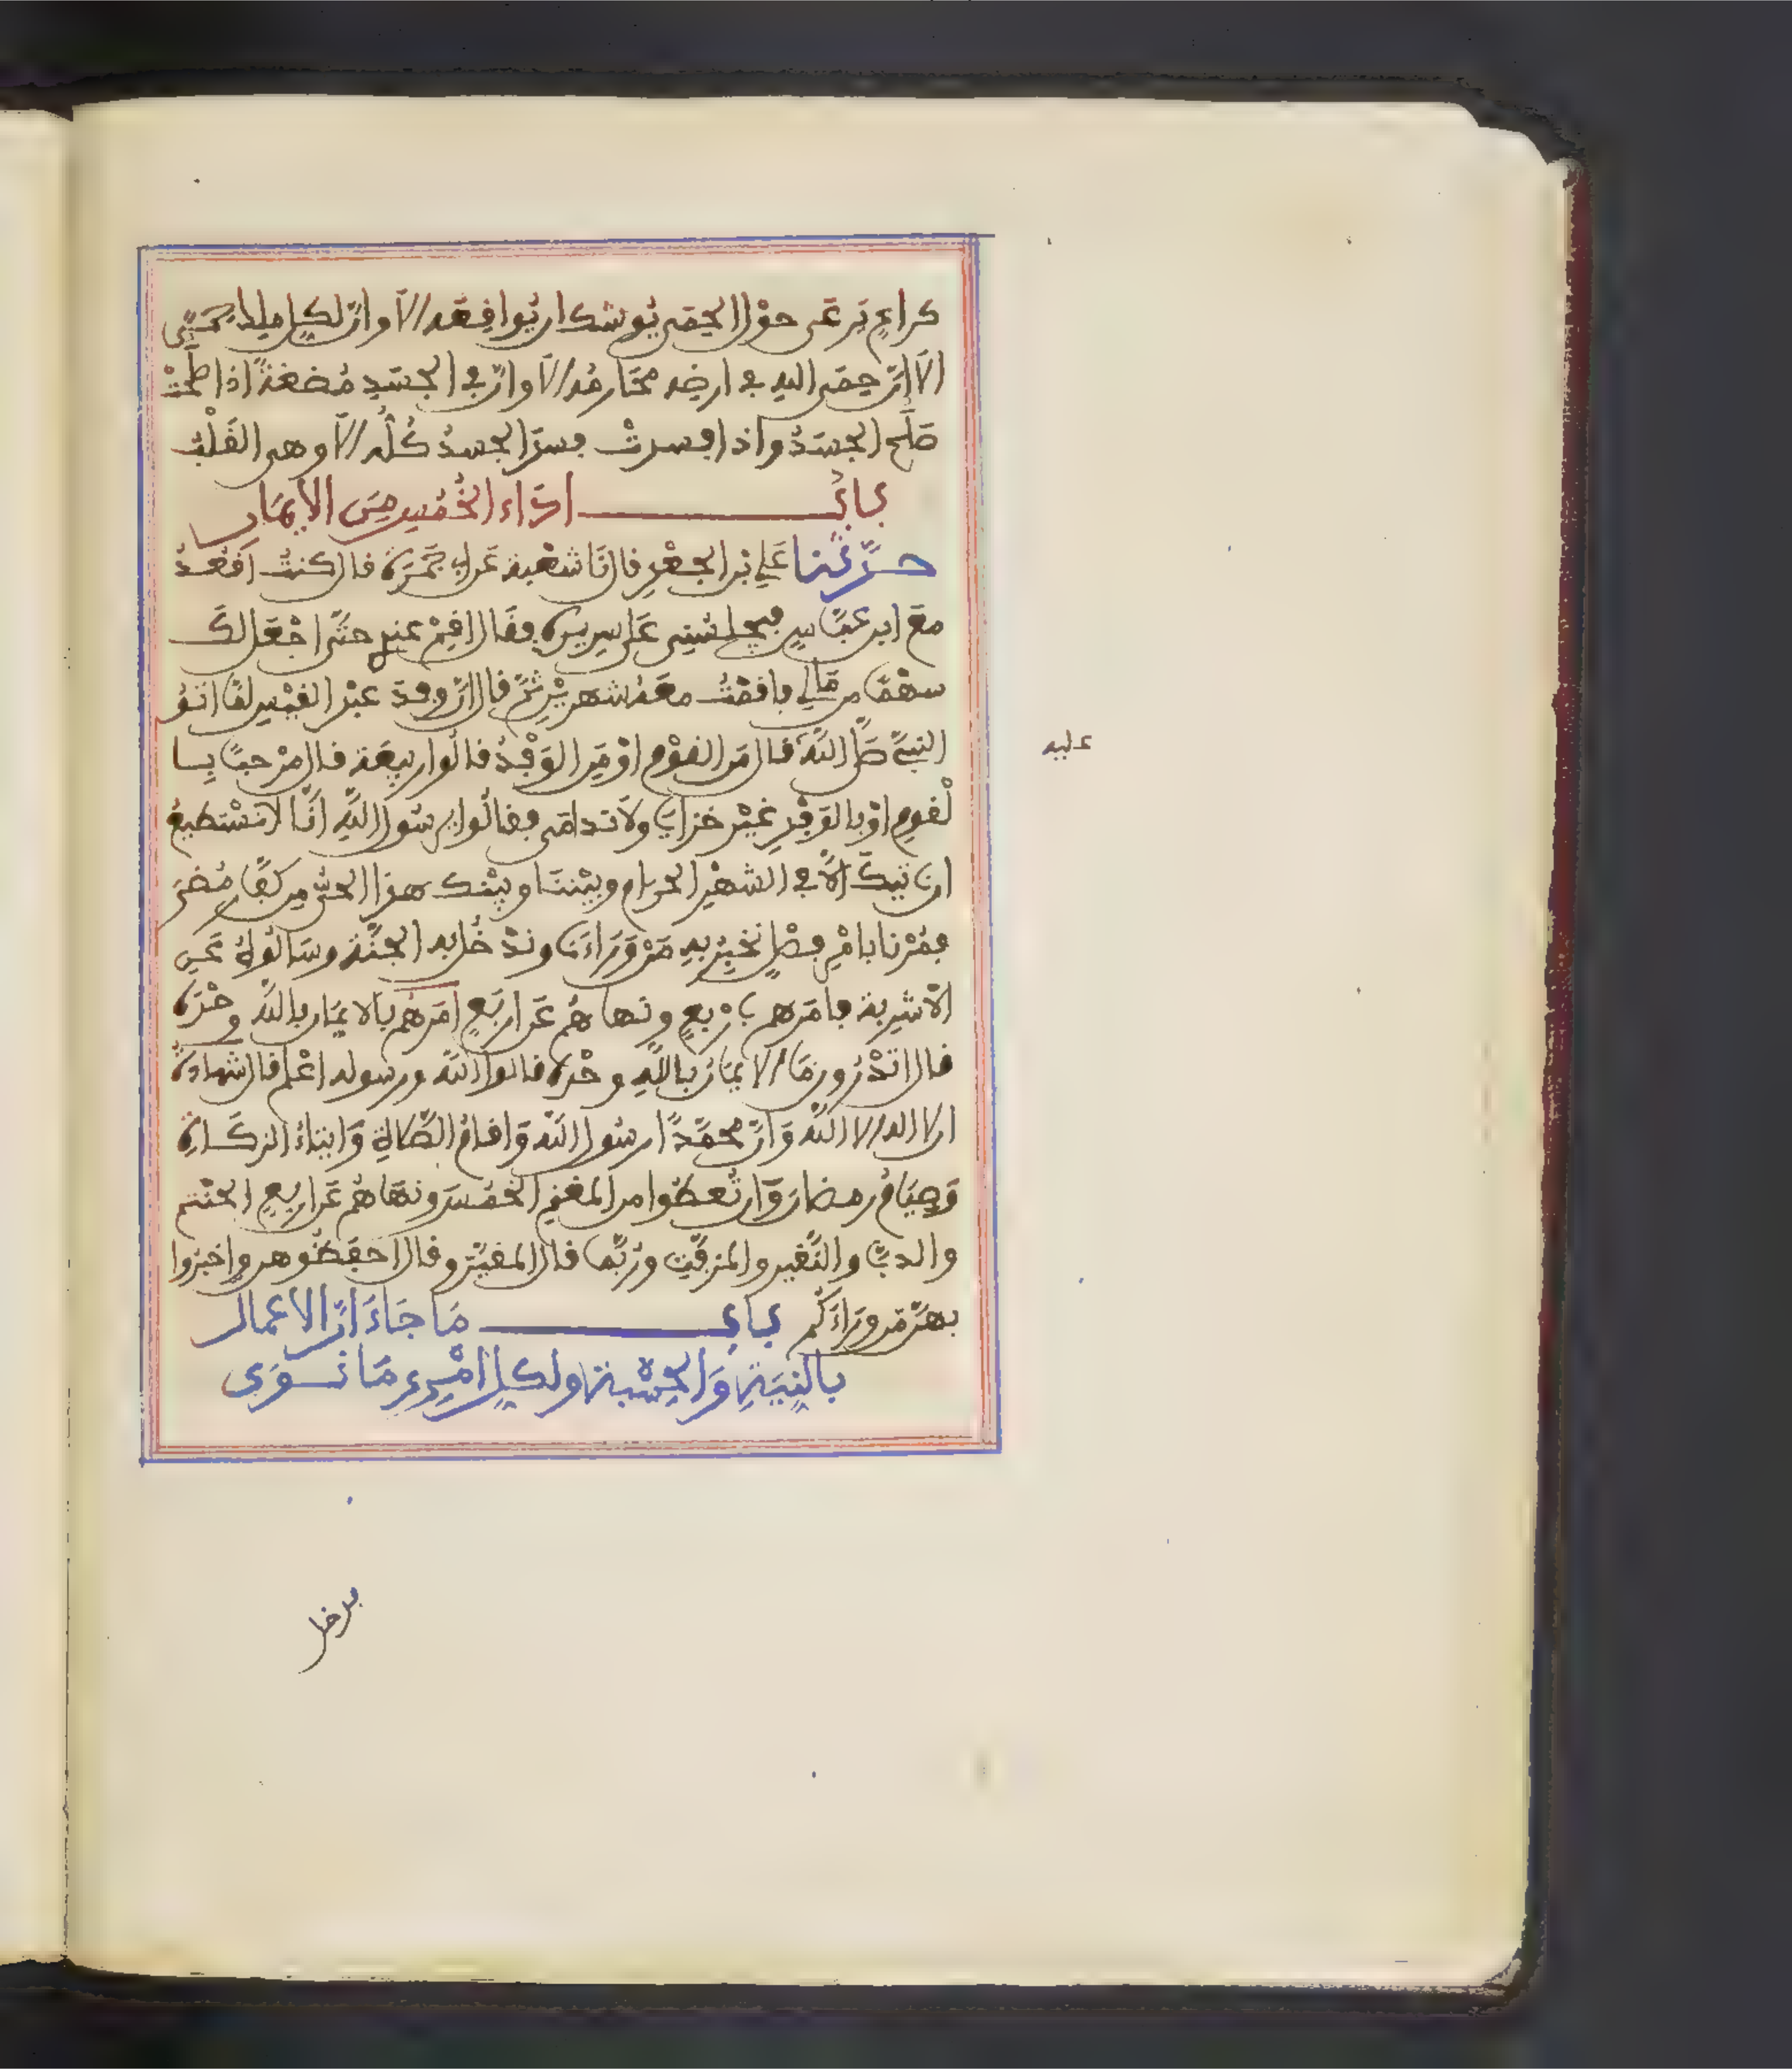 كراعٍ يَرعَى حوْل الحِمَى يُوشك ان يُوافِعَه الَا وانّ لكلِ ملك حِمًى
الَا انّ حِمَى الله في ارضِه مَحَارمُه الَا وانّ في الجسَدِ مُضغةً اذا صلحتْ
صَلَح الجسَدُ واذا فسدتْ فسدَ الجسدُ كُلُّه الَا وهى القَلْبُ
بابُ اَدَاء الخُمُسِ مِنَ الايمَان
حدّثنا عَلي بْن الجعْدِ قال نَا شعْبة عَن ابي جَمْرَة قال كنتُ اَقعُدُ
معَ ابن عبّاسٍ فيُجلسُنِى عَلى سريره فقَال اقِمْ عندِي حتَّى اجْعَل لكَ
سهْمًا من مَالي فاقمْتُ معَه شهريْن ثمّ قال انّ وفدَ عبْد القيْسِ لمّا اتوُ
النبيّ صَلى اللَّه قال مَن القوْم اوْ مَنِ الوَفْدُ قالُوا ربيعَة قال مرْحبًا بِا
لْقومِ اوْ بالوَفْدِ غيْر خزايَا ولَا ندامَى فقالُوا يرسُول اللَّهِ انَّا لَا نسْتطيعُ
ان ناتيكَ الاّ في الشهْرِ الحرام وبيْننَا وبيْنك هذا الحىُّ مِن كفّار مُضَرَ
فمُرْنا بامْرٍ فصْلٍ نخبِرْ بهِ مَنْ وَرَاءَنا وندْخُل به الجنّة وسَالُوهُ عَنِ
الاَشربة فامَرهم باَرْبعٍ ونهاهُم عَن ارْبَعٍ اَمَرهُم بالايمَان باللَّه وحْدَه
قال اتدْرُون مَا الايمَانُ باللَّهِ وحْدَه قالوا اللَّه ورسوله اعْلم قال شهادةُ
ان لا اله الا اللَّه وَانّ محمّدًا رسُول اللَّه وَاقامُ الصّلاةِ وَايتاءُ الزكَاةِ
وَصِيَامُ رمضانَ وَان تُعطُوا من المغنمِ الخمُسَ ونهَاهُم عَن اربعٍ الحنْتم
والدبّاء والنّقير والمزفّتِ ورُبّما قال المقيّر وقال احفَظُوهن واخبرُوا
بهنّ مَن ورَاءَكُم بابُ مَا جَاءَ اَنّ الاعمال
بالنِيَةِ وَالحِسْبة ولكلِ امْرِىءٍ مَا نوَى
عليه
فدخل